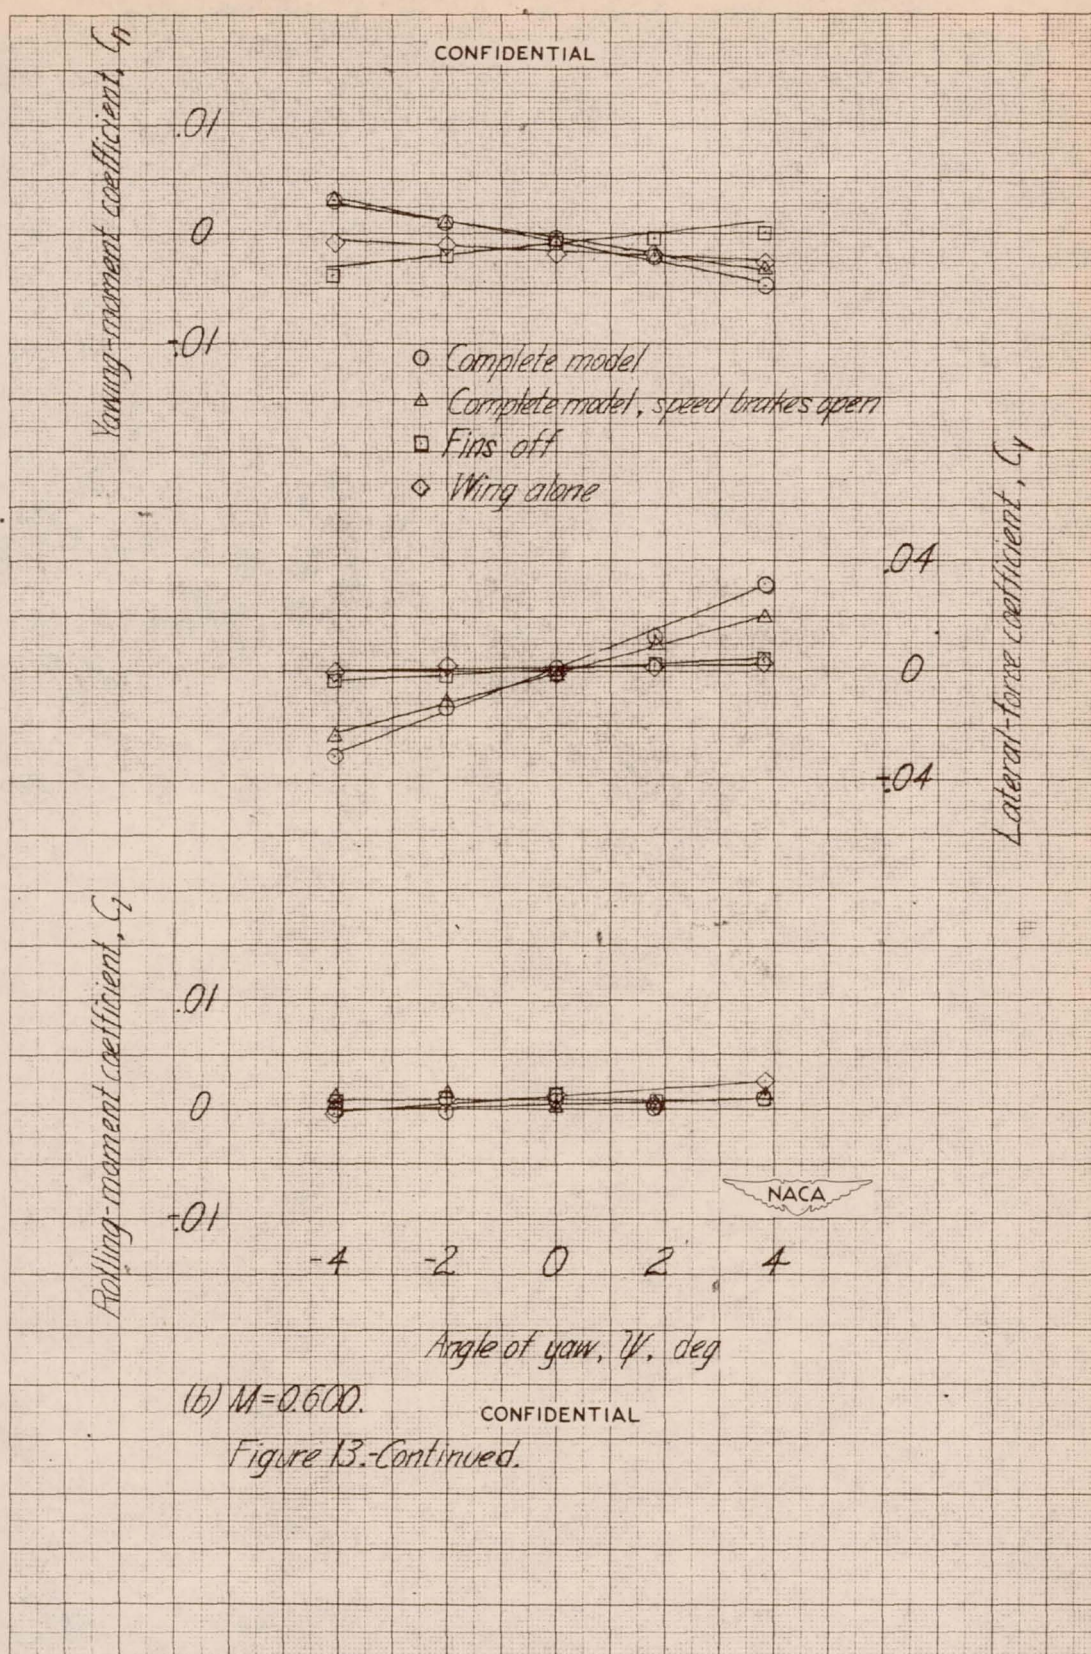 CONFIDENTIAL
Yawing-moment coefficient, Cn
.01
0
-.01
Complete model
Complete model, speed brakes open
Fins off
Wing alone
Lateral-force coefficient, Cy
.04
0
-.04
Rolling-moment coefficient, Cl
.01
0
-.01
NACA
-4 -2 0 2 4
Angle of yaw, ψ, deg
(b) M=0.600.
CONFIDENTIAL
Figure 13.-Continued.